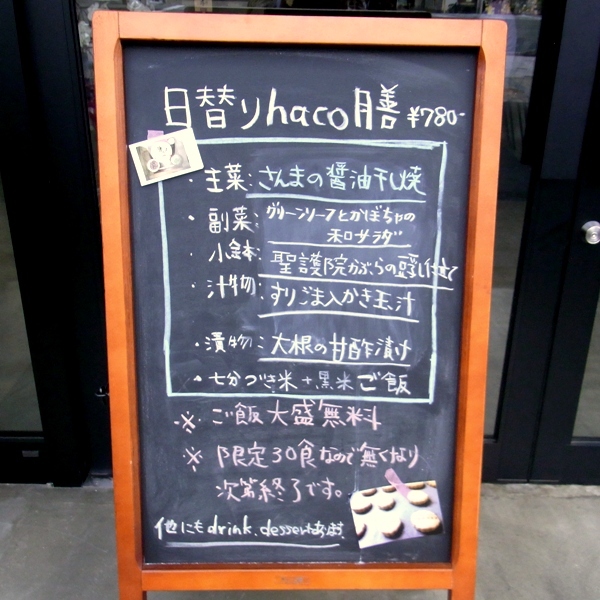 日替りhaco膳 ¥780-
・主菜:さんまの醤油干し焼
・副菜:グリーンリーフとかぼちゃの
和サラダ
・小鉢:聖護院かぶらの
・汁物:すりごま入かき玉汁
・漬物:大根の甘酢漬け
・七分づき米+黒米ご飯
※ご飯大盛無料
※限定30食なので無くなり
次第終了です。
他にもdrink、dessertあります